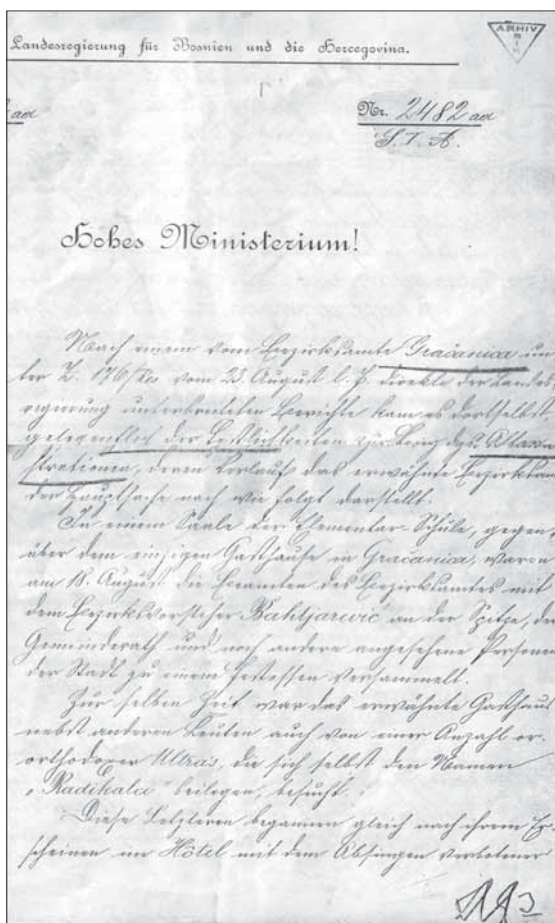 Landesregierung für Bosnien und die Hercegovina.
ARHIV
BIH
ad
Nr. 2482 ad
Hohes Ministerium!
Nach einem vom Bezirksamte Gračanica un-
ter Z. 176/ vom 23. August l. J. direkte der Landes
regierung unterbreiteten Berichte kam es dortselbst
gelegentlich der Festlichkeiten zu
strationen, deren Verlauf das erwähnte Bezirksam
der Hauptsache nach wie folgt darstellt.
In einem Saale der Elementar-Schule, gegen-
über dem einzigen Gasthause in Gračanica, waren
am 18. August die Beamten des Bezirksamtes mit
dem Bezirksvorsteher Bahtjarević an der Spitze, der
Gemeinderath und noch andere angesehene Personen
der Stadt zu einem Festessen versammelt.
Zur selben Zeit war das erwähnte Gasthaus
nebst anderen Leuten auch von einer Anzahl or.
orthodoxer Ultras, die sich selbst den Namen
„Radikalci" beilegen, besucht.
Diese Letzteren begannen gleich nach ihrem Er-
scheinen im Hôtel mit dem Absingen verbotener